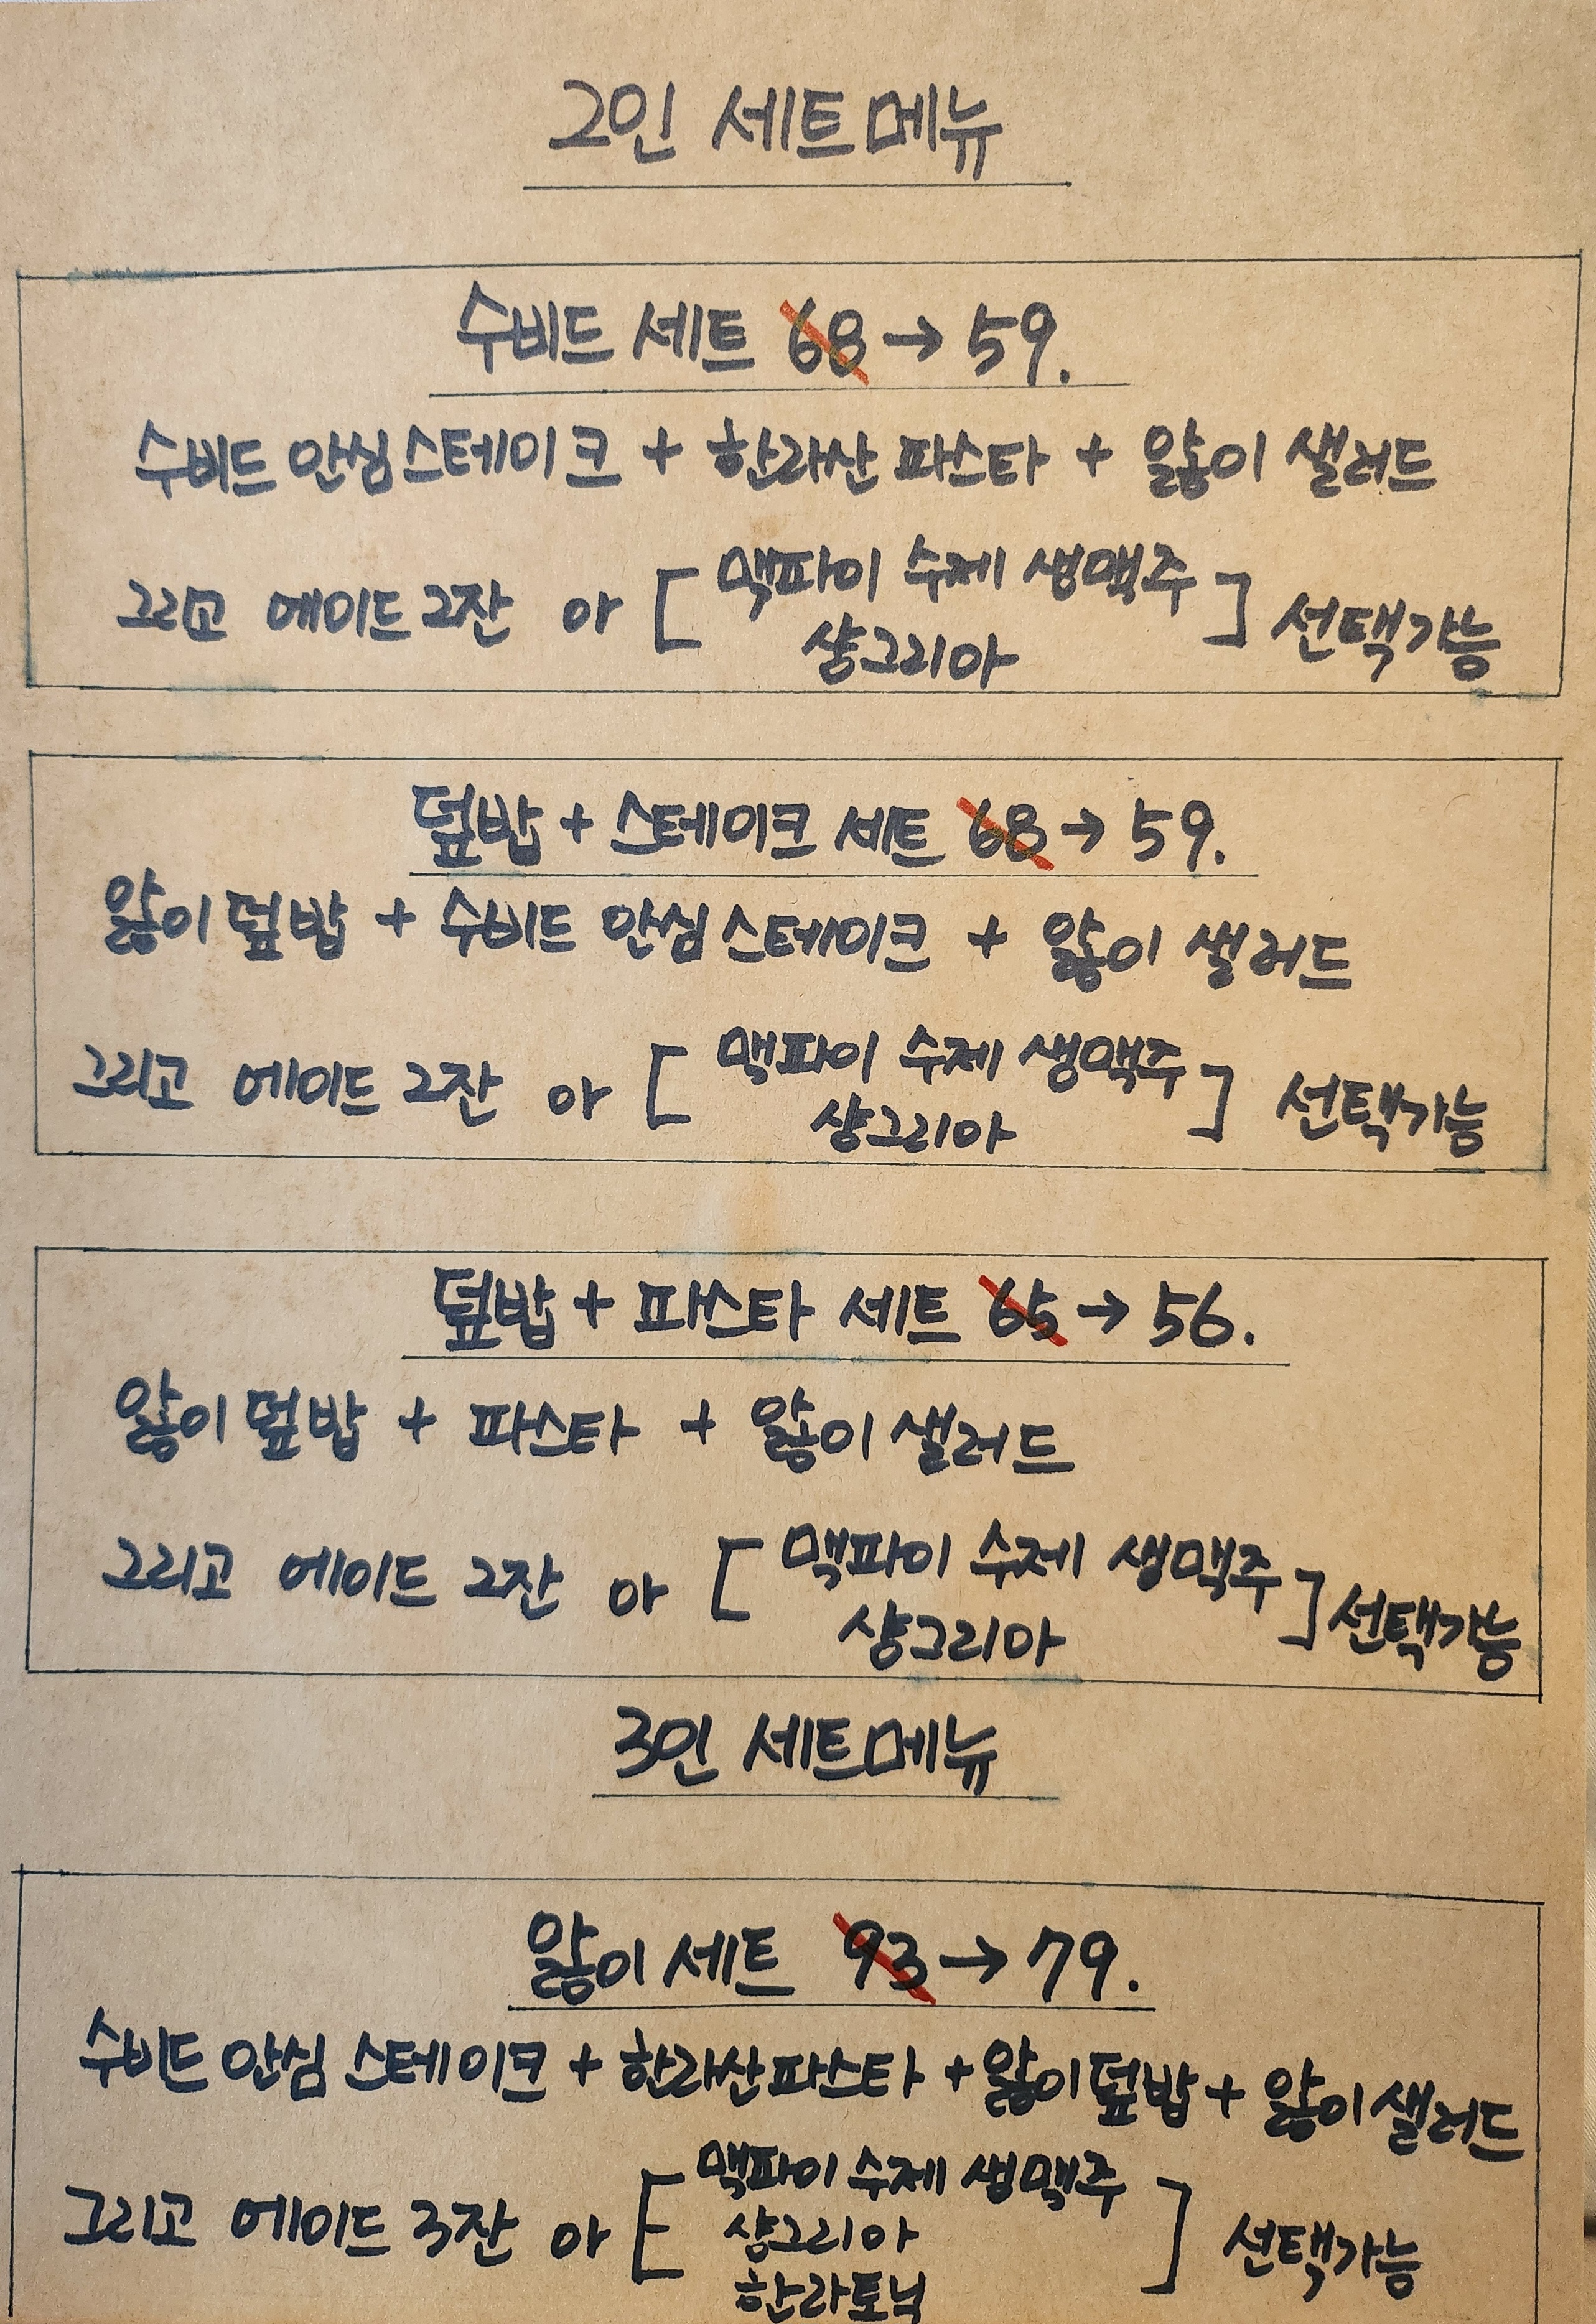 2인 세트메뉴
수비드 세트 68→59.
수비드 안심스테이크 + 한라산 파스타 + 앓이 샐러드
그리고 에이드 2잔 or [맥파이 수제 생맥주
샹그리아] 선택가능
덮밥 + 스테이크 세트 68→59.
앓이덮밥 + 수비드 안심스테이크 + 앓이 샐러드
그리고 에이드 2잔 or [맥파이 수제 생맥주
샹그리아] 선택가능
덮밥 + 파스타 세트 65→56.
앓이덮밥 + 파스타 + 앓이 샐러드
그리고 에이드 2잔 or [맥파이 수제 생맥주
샹그리아] 선택가능
3인 세트메뉴
앓이 세트 93→79.
수비드 안심 스테이크 + 한라산파스타 + 앓이덮밥 + 앓이 샐러드
그리고 에이드 3잔 or [맥파이 수제 생맥주
샹그리아
한라토닉] 선택가능